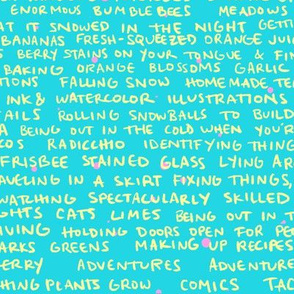 ENORMOUS BUMBLEBEES MEADOWS
AT IF SNOWED IN THE NIGHT GETTI
BANANAS FRESH-SQUEEZED ORANGE JUIC
S BERRY STAINS ON YOUR TONGUE & FIN
BAKING ORANGE BLOSSOMS GARLIC
TIONS FALLING SNOW HOMEMADE TE
INK & WATERCOLOR ILLUSTRATIONS
AILS ROLLING SNOWBALLS TO BUILD
A BEING OUT IN THE COLD WHEN YOU'R
COS RADICCHIO IDENTIFYING THING
FRISBEE STAINED GLASS LYING AR
AVELING IN A SKIRT FIXING THINGS,
WATCHING SPECTACULARLY SKILLED
GHTS CATS LIMES BEING OUT IN
IVING HOLDING DOORS OPEN FOR PE
ARKS GREENS MAKING UP RECIPES
ERRY ADVENTURES ADVENTURE
HING PLANTS GROW COMICS TAC